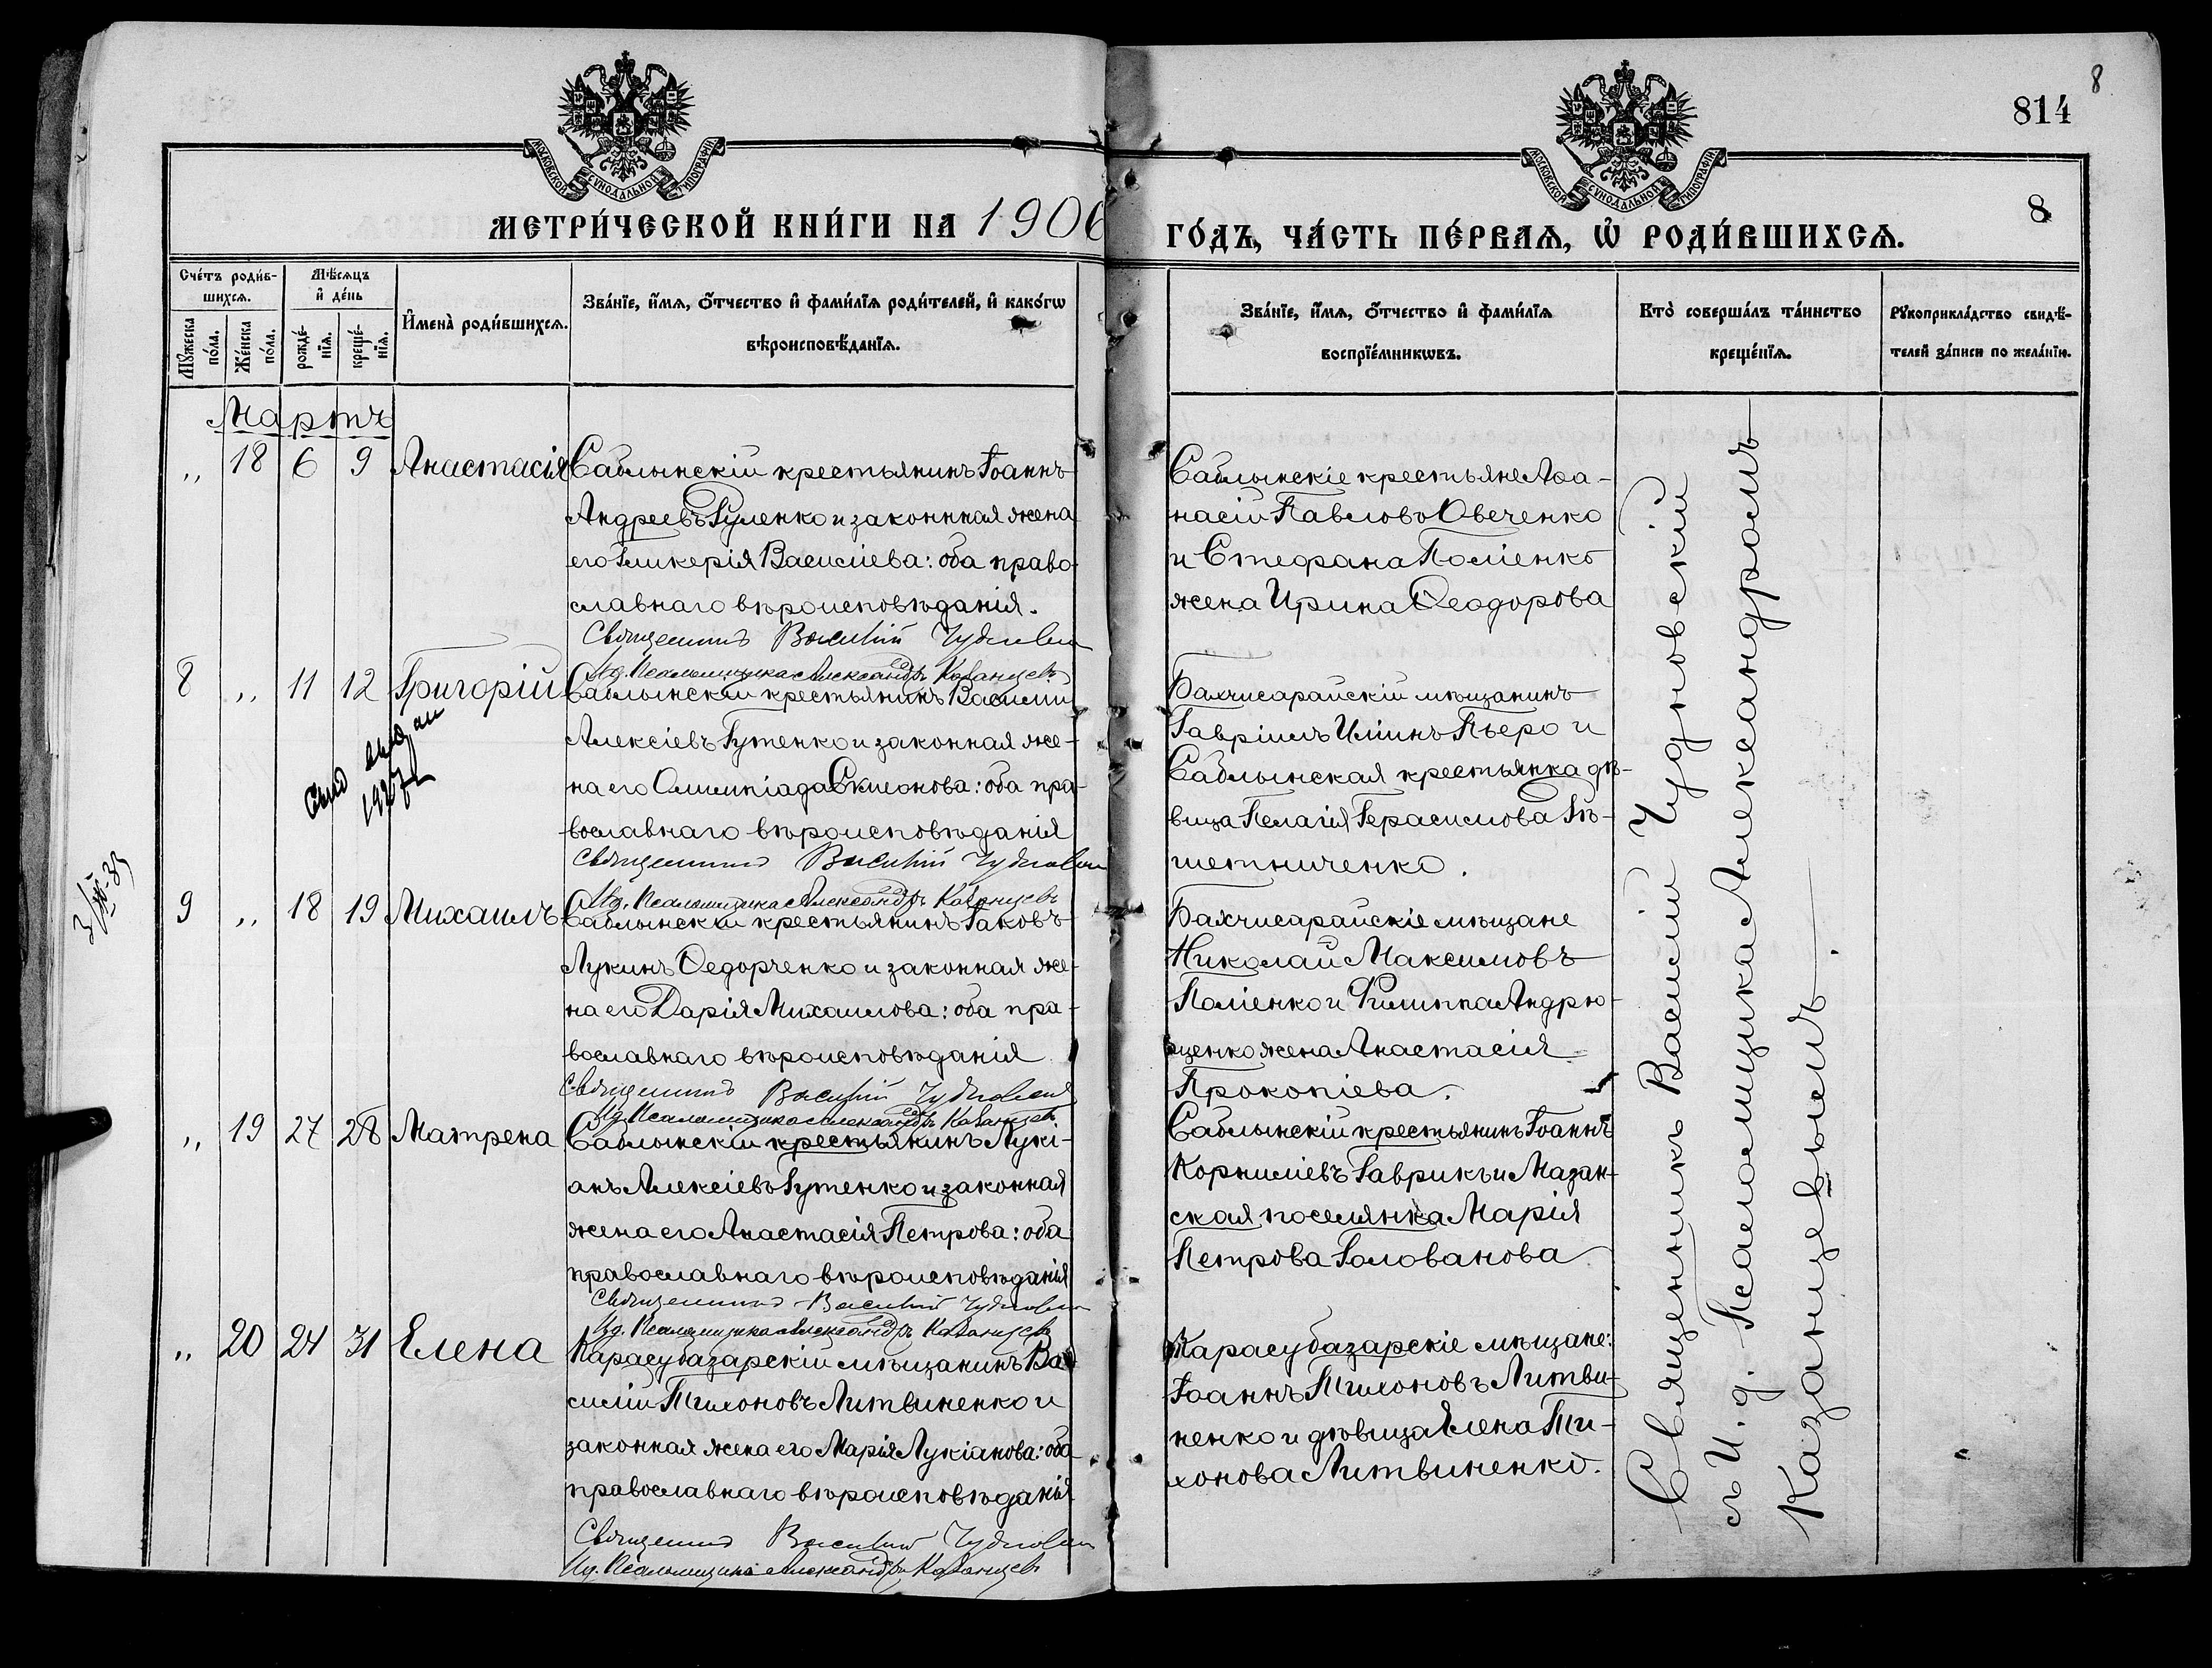 8
814
8
МОСКОВСКОЙ СУНОДАЛЬНОЙ ТИПОГРАФІИ
МОСКОВСКОЙ СУНОДАЛЬНОЙ ТИПОГРАФІИ
МЕТРИ́ЧЕСКОЙ КНИ́ГИ НА 1906
ГО́ДЪ, ЧА́СТЬ ПЕ́РВАѦ, Ѡ РОДИ́ВШИХСѦ.
Сче́тъ роди́в-
шихсѧ.
Мꙋ́жеска по́ла.
Же́нска по́ла.
Мѣ́сѧцъ
и҆ де́нь
рожде́-
нїѧ.
креще́-
нїѧ.
И҆мена̀ роди́вшихсѧ.
Зва́нїе, и҆́мѧ, ѻ҆́тчество и҆ фами́лїѧ роди́телей, и҆ како́гѡ
вѣроисповѣ́данїѧ.
Зва́нїе, и҆́мѧ, ѻ҆́тчество и҆ фами́лїѧ
воспрїе́мникѡвъ.
Кто̀ соверша́лъ та́инство
креще́нїѧ.
Рꙋкоприкла́дство свидѣ́-
телей за́писи по жела́нїю.
Мартъ
„ 18 6 9 Анастасія
Саблынскій крестьянинъ Іоаннъ
Андреевъ Гуленко и законнная жена
его Гликерія Василіева: оба право-
славнаго вѣроисповѣданія.
Священникъ Василій Чудновскій
И.д. Псаломщика Александръ Казанцевъ
Саблынскіе крестьяне Аѳа-
насій Павловъ Овеченко
и Стефана Поліенко
жена Ирина Ѳеодорова
8 „ 11 12 Григорій
Саблынскій крестьянинъ Василій
Алексіевъ Гутенко и законная же-
на его Олимпіада Симонова: оба пра-
вославнаго вѣроисповѣданія
Священникъ Василій Чудновскій
И.д. Псаломщика Александръ Казанцевъ
Бахчисарайскій мѣщанинъ
Гавріилъ Иліинъ Пьеро и
Саблынская крестьянка дѣ-
вица Пелагія Герасимова
1927
9 „ 18 19 Михаилъ
Саблынскій крестьянинъ Іаковъ
Лукинъ Ѳедорченко и законная же-
на его Дарія Михаилова: оба пра-
вославнаго вѣроисповѣданія
Священникъ Василій Чудновскій
И.д. Псаломщика Александръ Казанцевъ
Бахчисарайскіе мѣщане
Николай Максимовъ
Поліенко и Филиппа Андрю-
щенко жена Анастасія
Прокопіева.
„ 19 27 28 Матрена
Саблынскій крестьянинъ Лукі-
анъ Алексіевъ Гутенко и законная
жена его Анастасія Петрова: оба
православнаго вѣроисповѣданія
Священникъ Василій Чудновскій
И.д. Псаломщика Александръ Казанцевъ
Саблынскій крестьянинъ Іоаннъ
Корниліевъ Гаврикъ и Мазан-
ская поселянка Марія
Петрова Голованова
„ 20 24 31 Елена
Карасубазарскій мѣщанинъ Ва-
силій Тихоновъ Литвиненко и
законная жена его Марія Лукіанова: оба
православнаго вѣроисповѣданія
Священникъ Василій Чудновскій
И.д. Псаломщика Александръ Казанцевъ
Карасубазарскіе мѣщане:
Іоаннъ Тихоновъ Литви-
ненко и дѣвица Елена Ти-
хонова Литвиненко.
Священникъ Василій Чудновскій
съ И. д. Псаломщика Александромъ
Казанцевымъ.